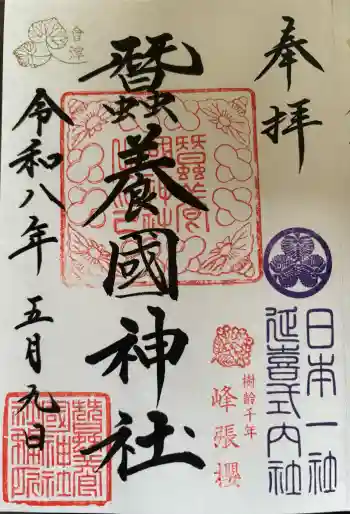 奉拝
日本一社
延喜式内社
樹齢千年
峰張櫻
蠶養國神社
會津
令和八年 五月九日
蠶養
國神社
社務所